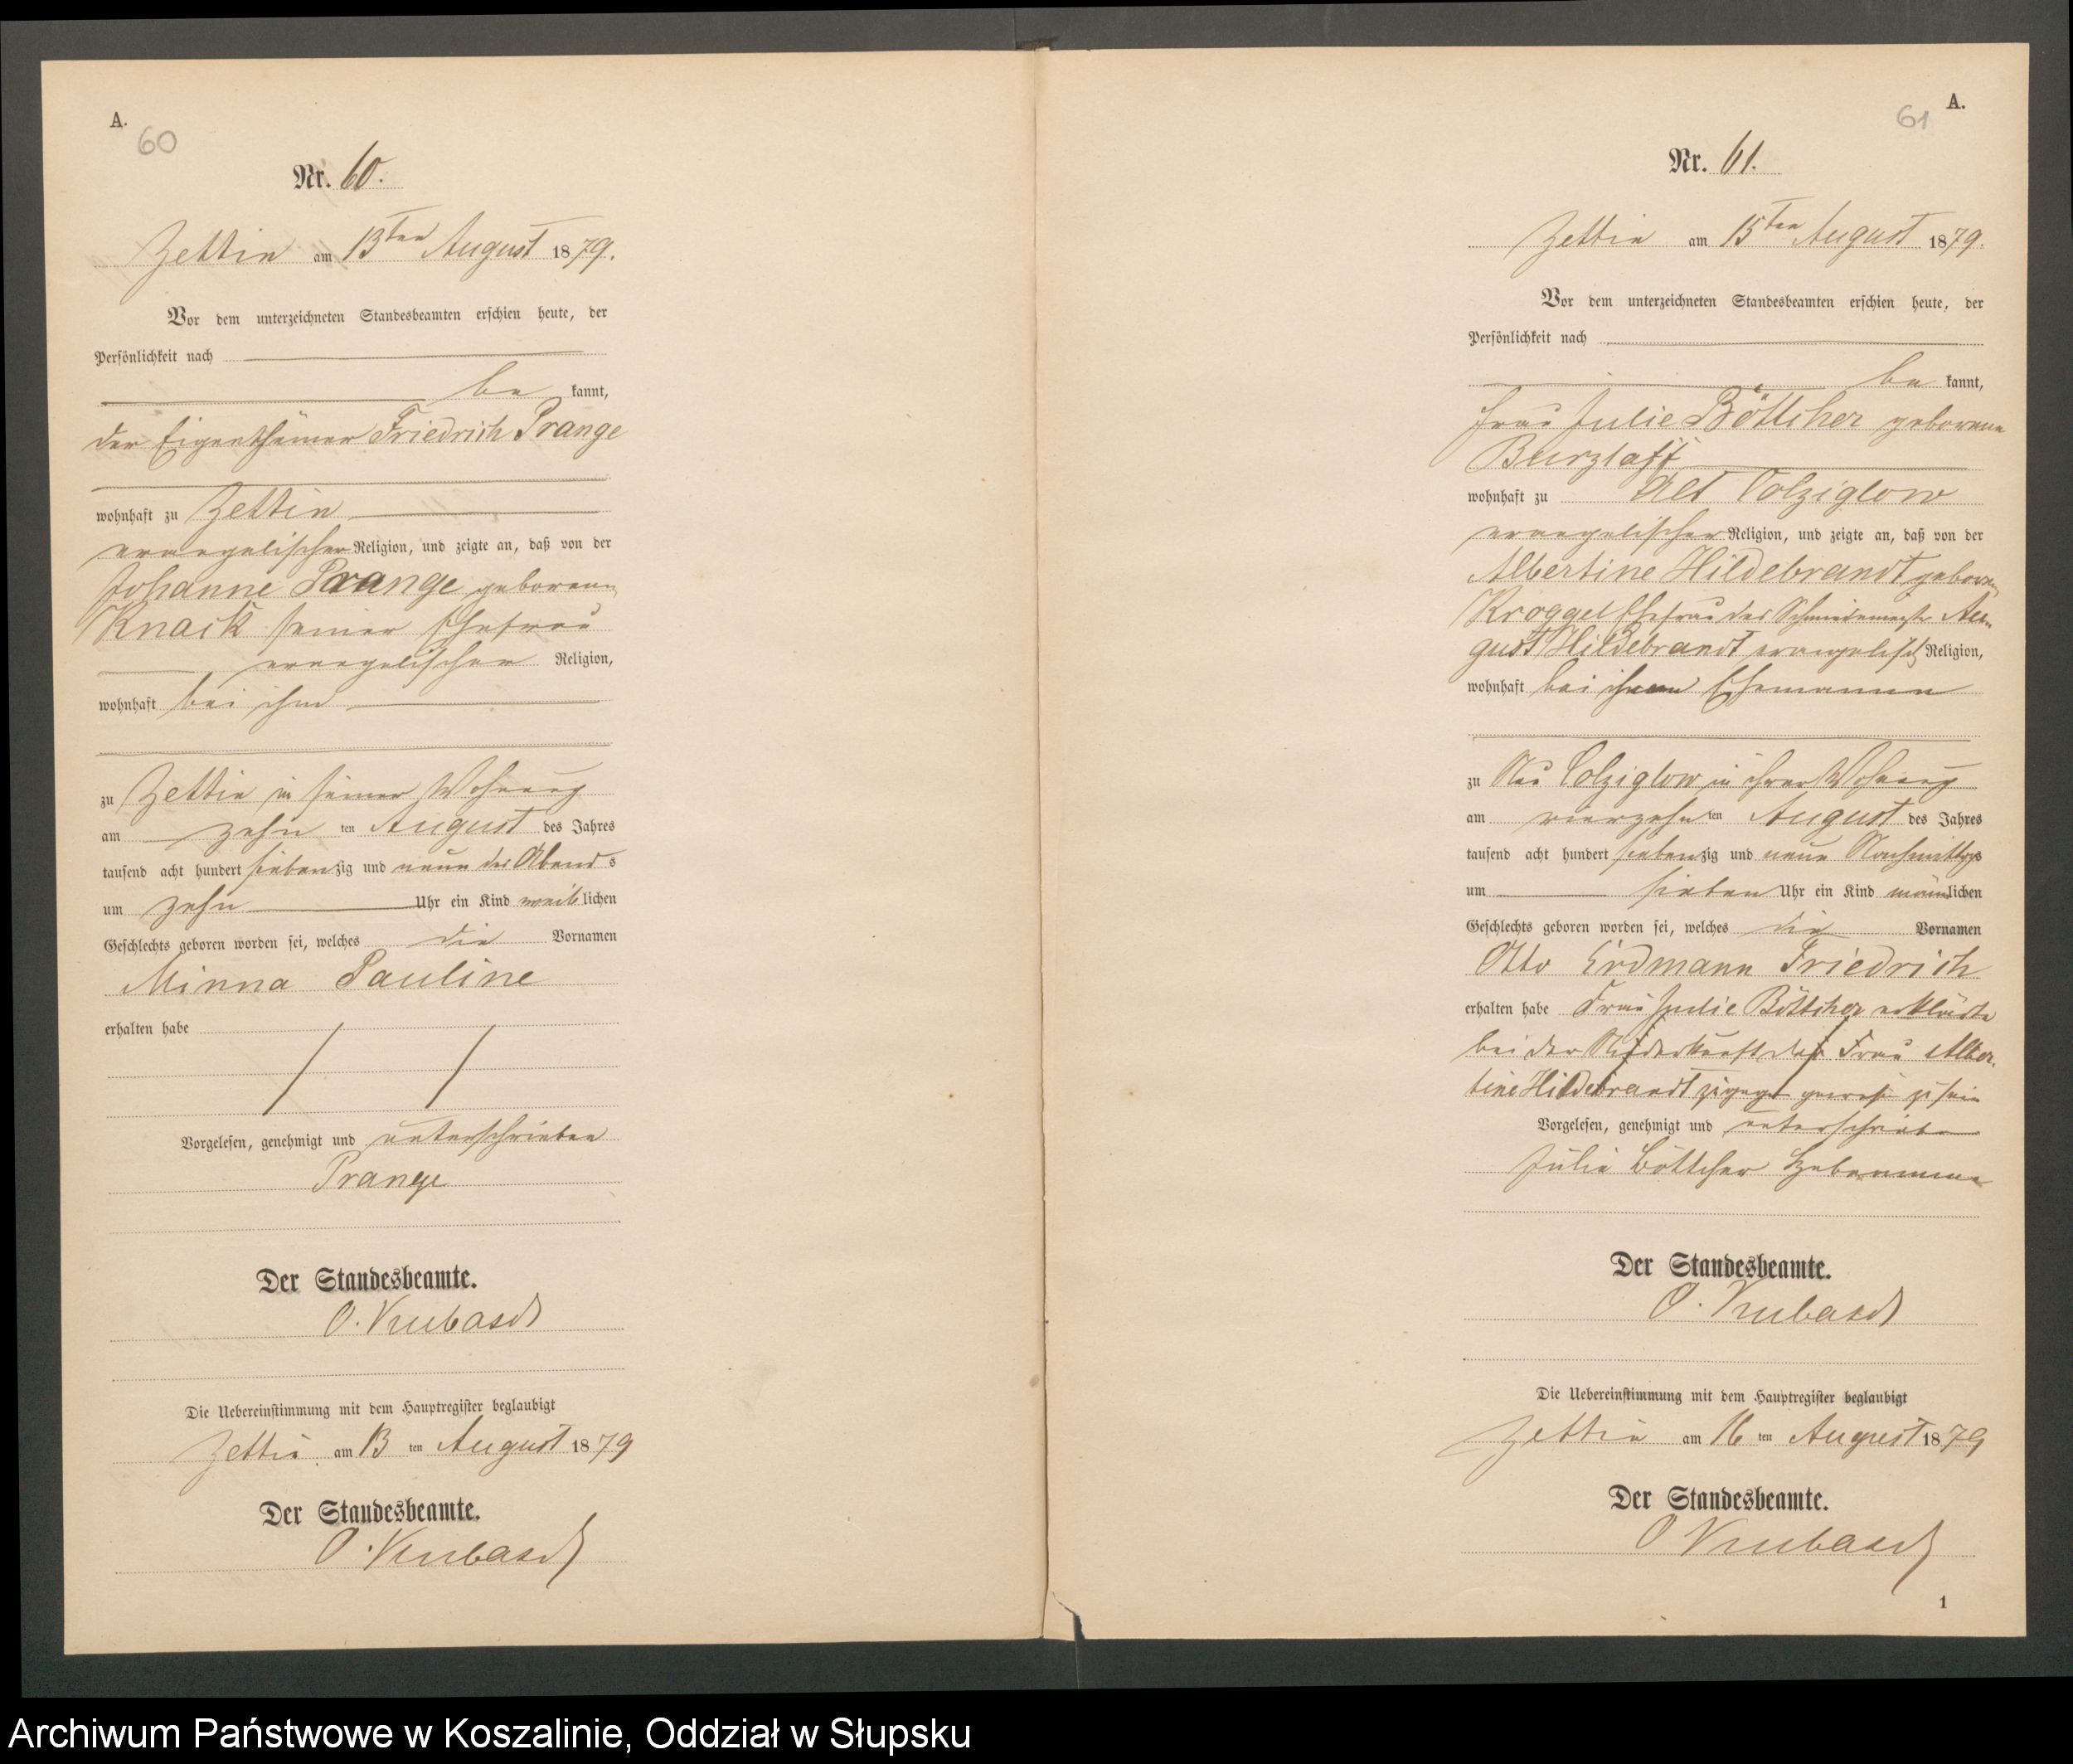 A.
60
Nr. 60.
Zettin am 13ten August 1879.
Vor dem unterzeichneten Standesbeamten erschien heute, der
Persönlichkeit nach
be kannt,
der Eigenthümer Friedrich Prange
wohnhaft zu Zettin
evangelischer Religion, und zeigte an, daß von der
Johanne Prange geborene
Knack seiner Ehefrau
evangelischer Religion,
wohnhaft bei ihm
zu Zettin in seiner Wohnung
am zehn ten August des Jahres
tausend acht hundert siebenzig und neun des Abends
um zehn Uhr ein Kind weiblichen
Geschlechts geboren worden sei, welches die Vornamen
Minna Pauline
erhalten habe
Vorgelesen, genehmigt und unterschrieben
Prange
Der Standesbeamte.
O. Kubasch
Die Uebereinstimmung mit dem Hauptregister beglaubigt
Zettin am 13 ten August 1879
Der Standesbeamte.
O. Kubasch
A.
61
Nr. 61.
Zettin am 15ten August 1879.
Vor dem unterzeichneten Standesbeamten erschien heute, der
Persönlichkeit nach
be kannt,
Frau Julie Böttcher geborene
Burzlaff
wohnhaft zu Alt Colziglow
evangelischer Religion, und zeigte an, daß von der
Albertine Hildebrandt geboren
Kroggel Ehefrau des Schmiedemeister Au-
gust Hildebrandt evangelisch Religion,
wohnhaft bei ihrem Ehemanne
zu Neu Colziglow in ihrer Wohnung
am vierzehn ten August des Jahres
tausend acht hundert siebenzig und neun Nachmittags
um sieben Uhr ein Kind männlichen
Geschlechts geboren worden sei, welches die Vornamen
Otto Erdmann Friedrich
erhalten habe Frau Julie Böttcher erklärte
bei der Niederkunft der Frau Alber-
tine Hildebrandt zugegen gewesen zu sein
Vorgelesen, genehmigt und unterschrieben
Julie Böttcher Hebamme
Der Standesbeamte.
O. Kubasch
Die Uebereinstimmung mit dem Hauptregister beglaubigt
Zettin am 16 ten August 1879
Der Standesbeamte.
O Kubasch
1
Archiwum Państwowe w Koszalinie, Oddział w Słupsku